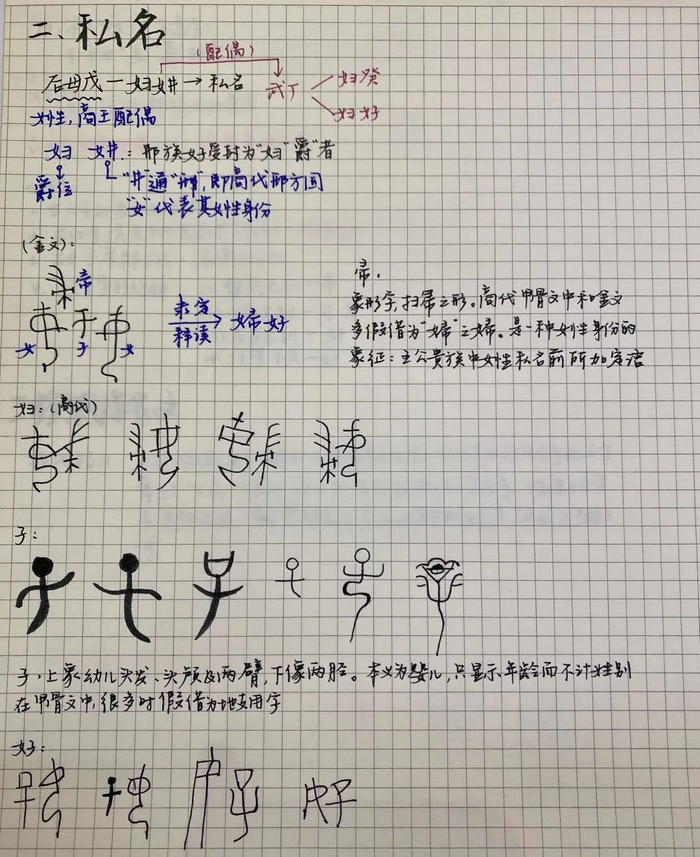 二、私名
(配偶)
后母戊—妇妌→私名 武丁 妇癸
妇好
女性,商王配偶
妇 妌:邢族女子受封为"妇"爵者
爵位 "井"通"邢",即商代邢方国
"女"代表其女性身份
(金文):
帚 女 子 女
隶定
释读
婦好
帚.
象形字,扫帚之形。商代甲骨文中和金文
多假借为"婦"之婦。是一种女性身份的
象征:王公贵族中女性私名前所加定语
妇:(商代)
子:
子,上象幼儿头发、头颅及两臂,下像两胫。本义为婴儿,只显示年龄而不计性别
在甲骨文中,很多时假借为地支用字
好: